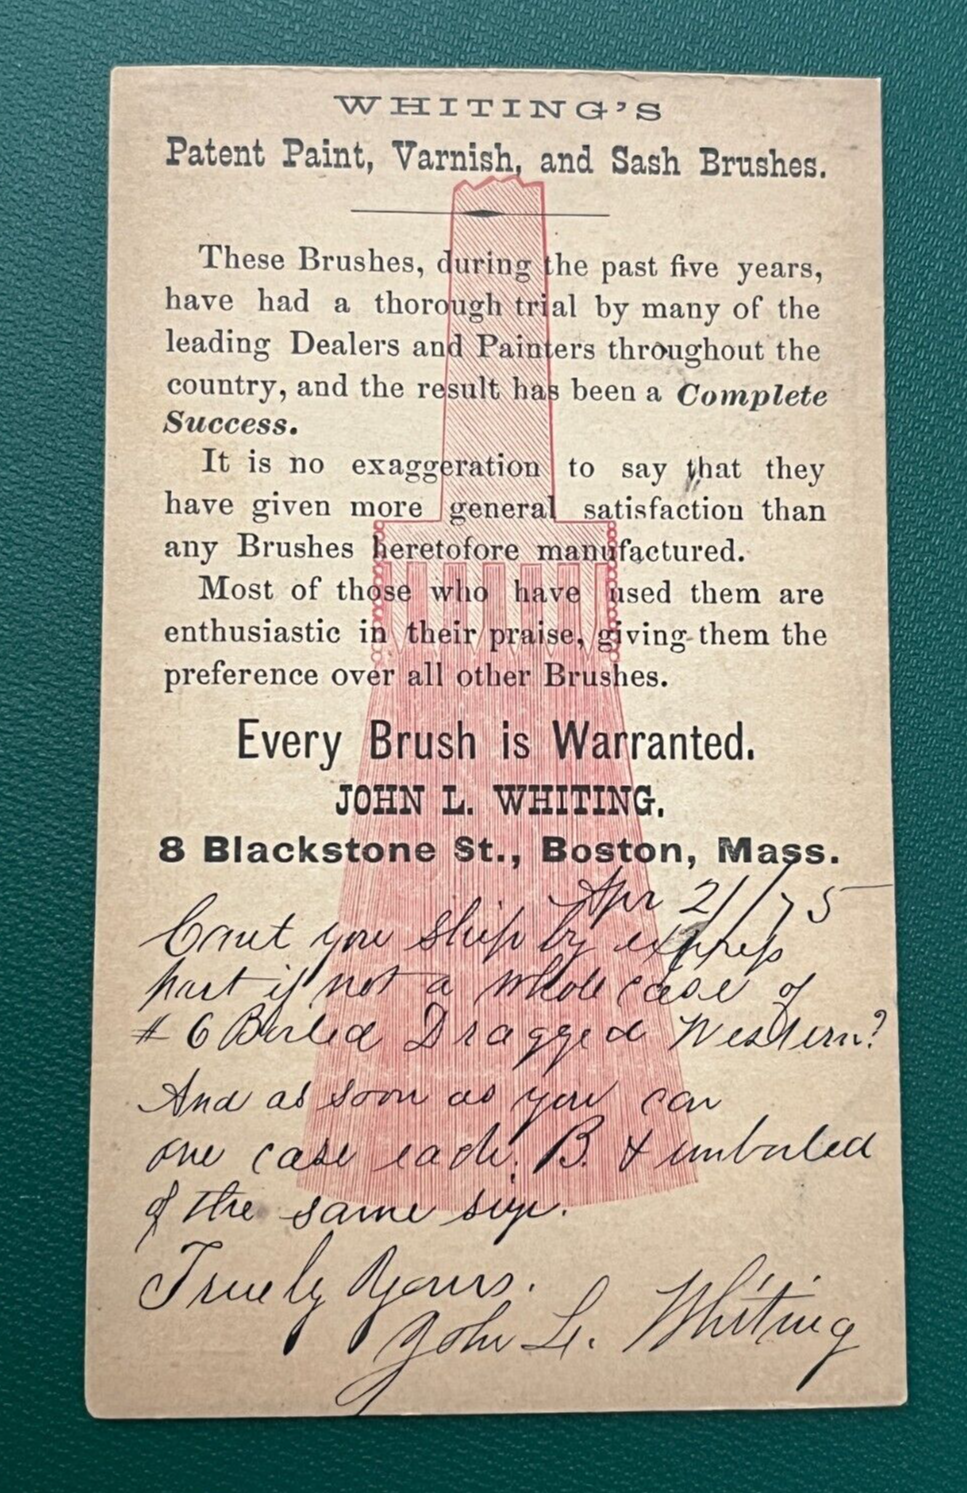 WHITING'S
Patent Paint, Varnish, and Sash Brushes.
These Brushes, during the past five years,
have had a thorough trial by many of the
leading Dealers and Painters throughout the
country, and the result has been a Complete
Success.
It is no exaggeration to say that they
have given more general satisfaction than
any Brushes heretofore manufactured.
Most of those who have used them are
enthusiastic in their praise, giving them the
preference over all other Brushes.
Every Brush is Warranted.
JOHN L. WHITING.
8 Blackstone St., Boston, Mass.
Apr 21/75
Cant you ship by express
part if not a whole case of
# 6 Boiled Dragged Western?
And as soon as you can
one case each. B. & unboiled
of the same size.
Truely Yours.
John L. Whiting